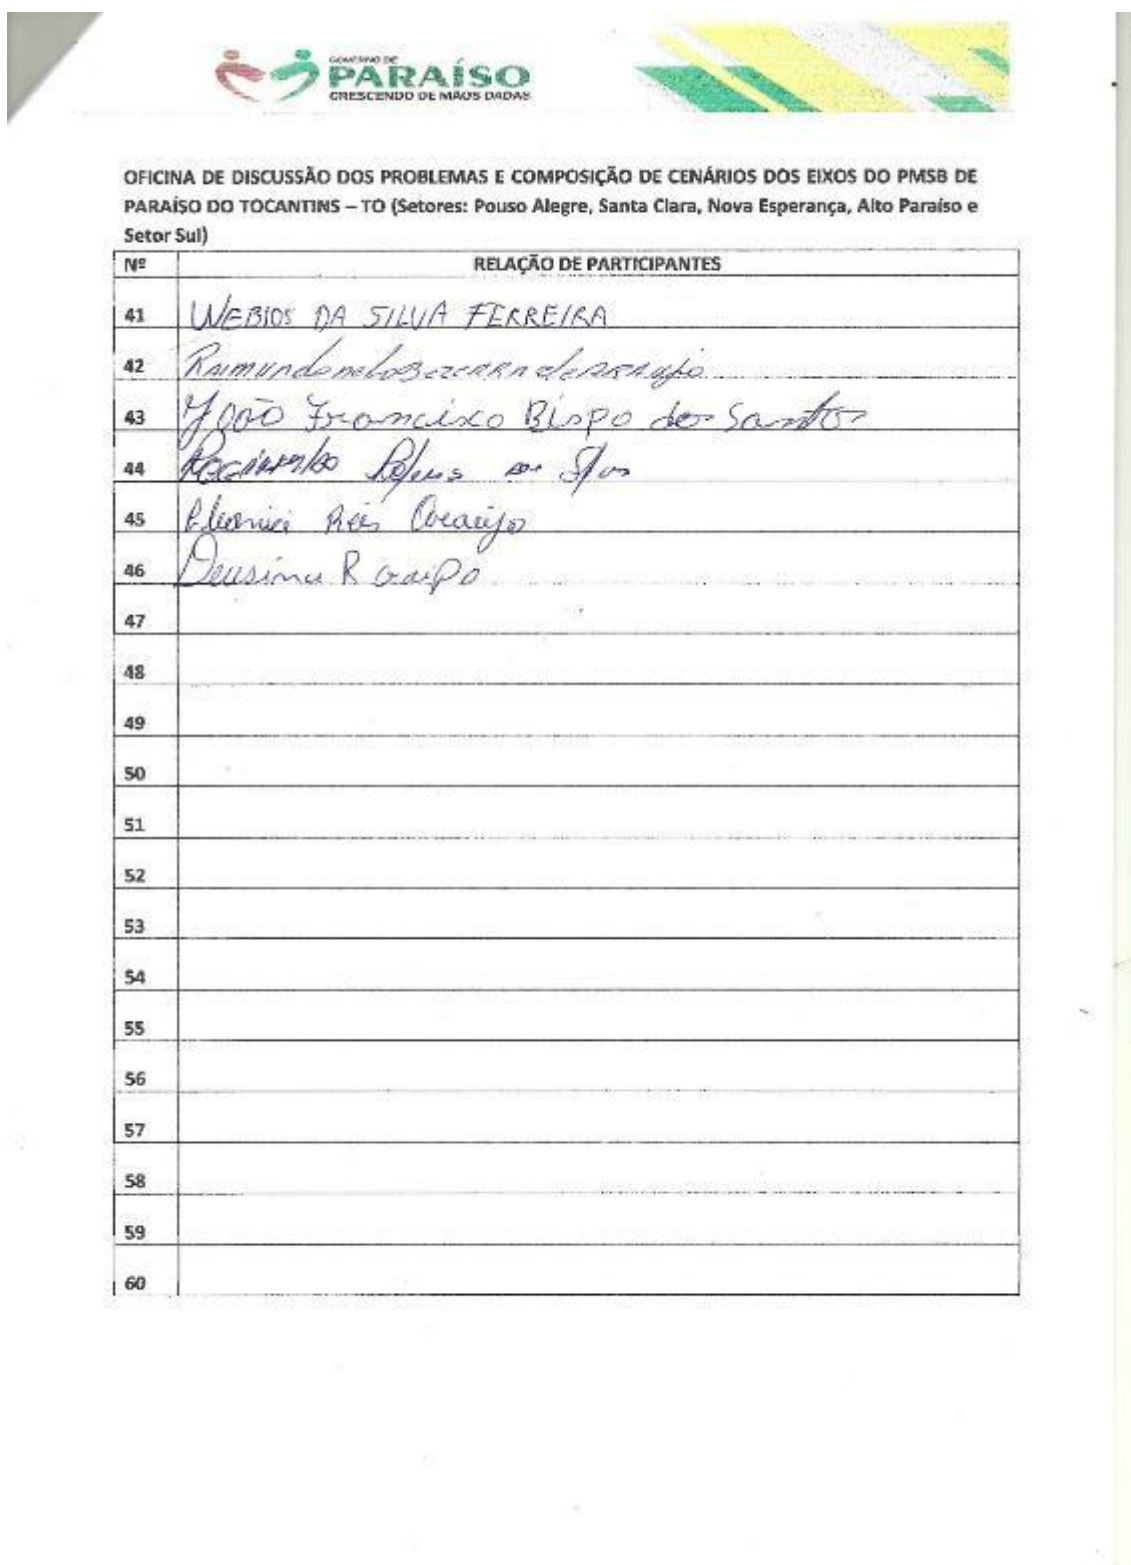 GOVERNO DE
PARAÍSO
CRESCENDO DE MÃOS DADAS
OFICINA DE DISCUSSÃO DOS PROBLEMAS E COMPOSIÇÃO DE CENÁRIOS DOS EIXOS DO PMSB DE
PARAÍSO DO TOCANTINS – TO (Setores: Pouso Alegre, Santa Clara, Nova Esperança, Alto Paraíso e
Setor Sul)
Nº RELAÇÃO DE PARTICIPANTES
41 WEBIOS DA SILVA FERREIRA
42 Raimundo de Araujo
43 João Francisco Bispo dos Santos
44
45 Reis
46 Deusina R
47
48
49
50
51
52
53
54
55
56
57
58
59
60